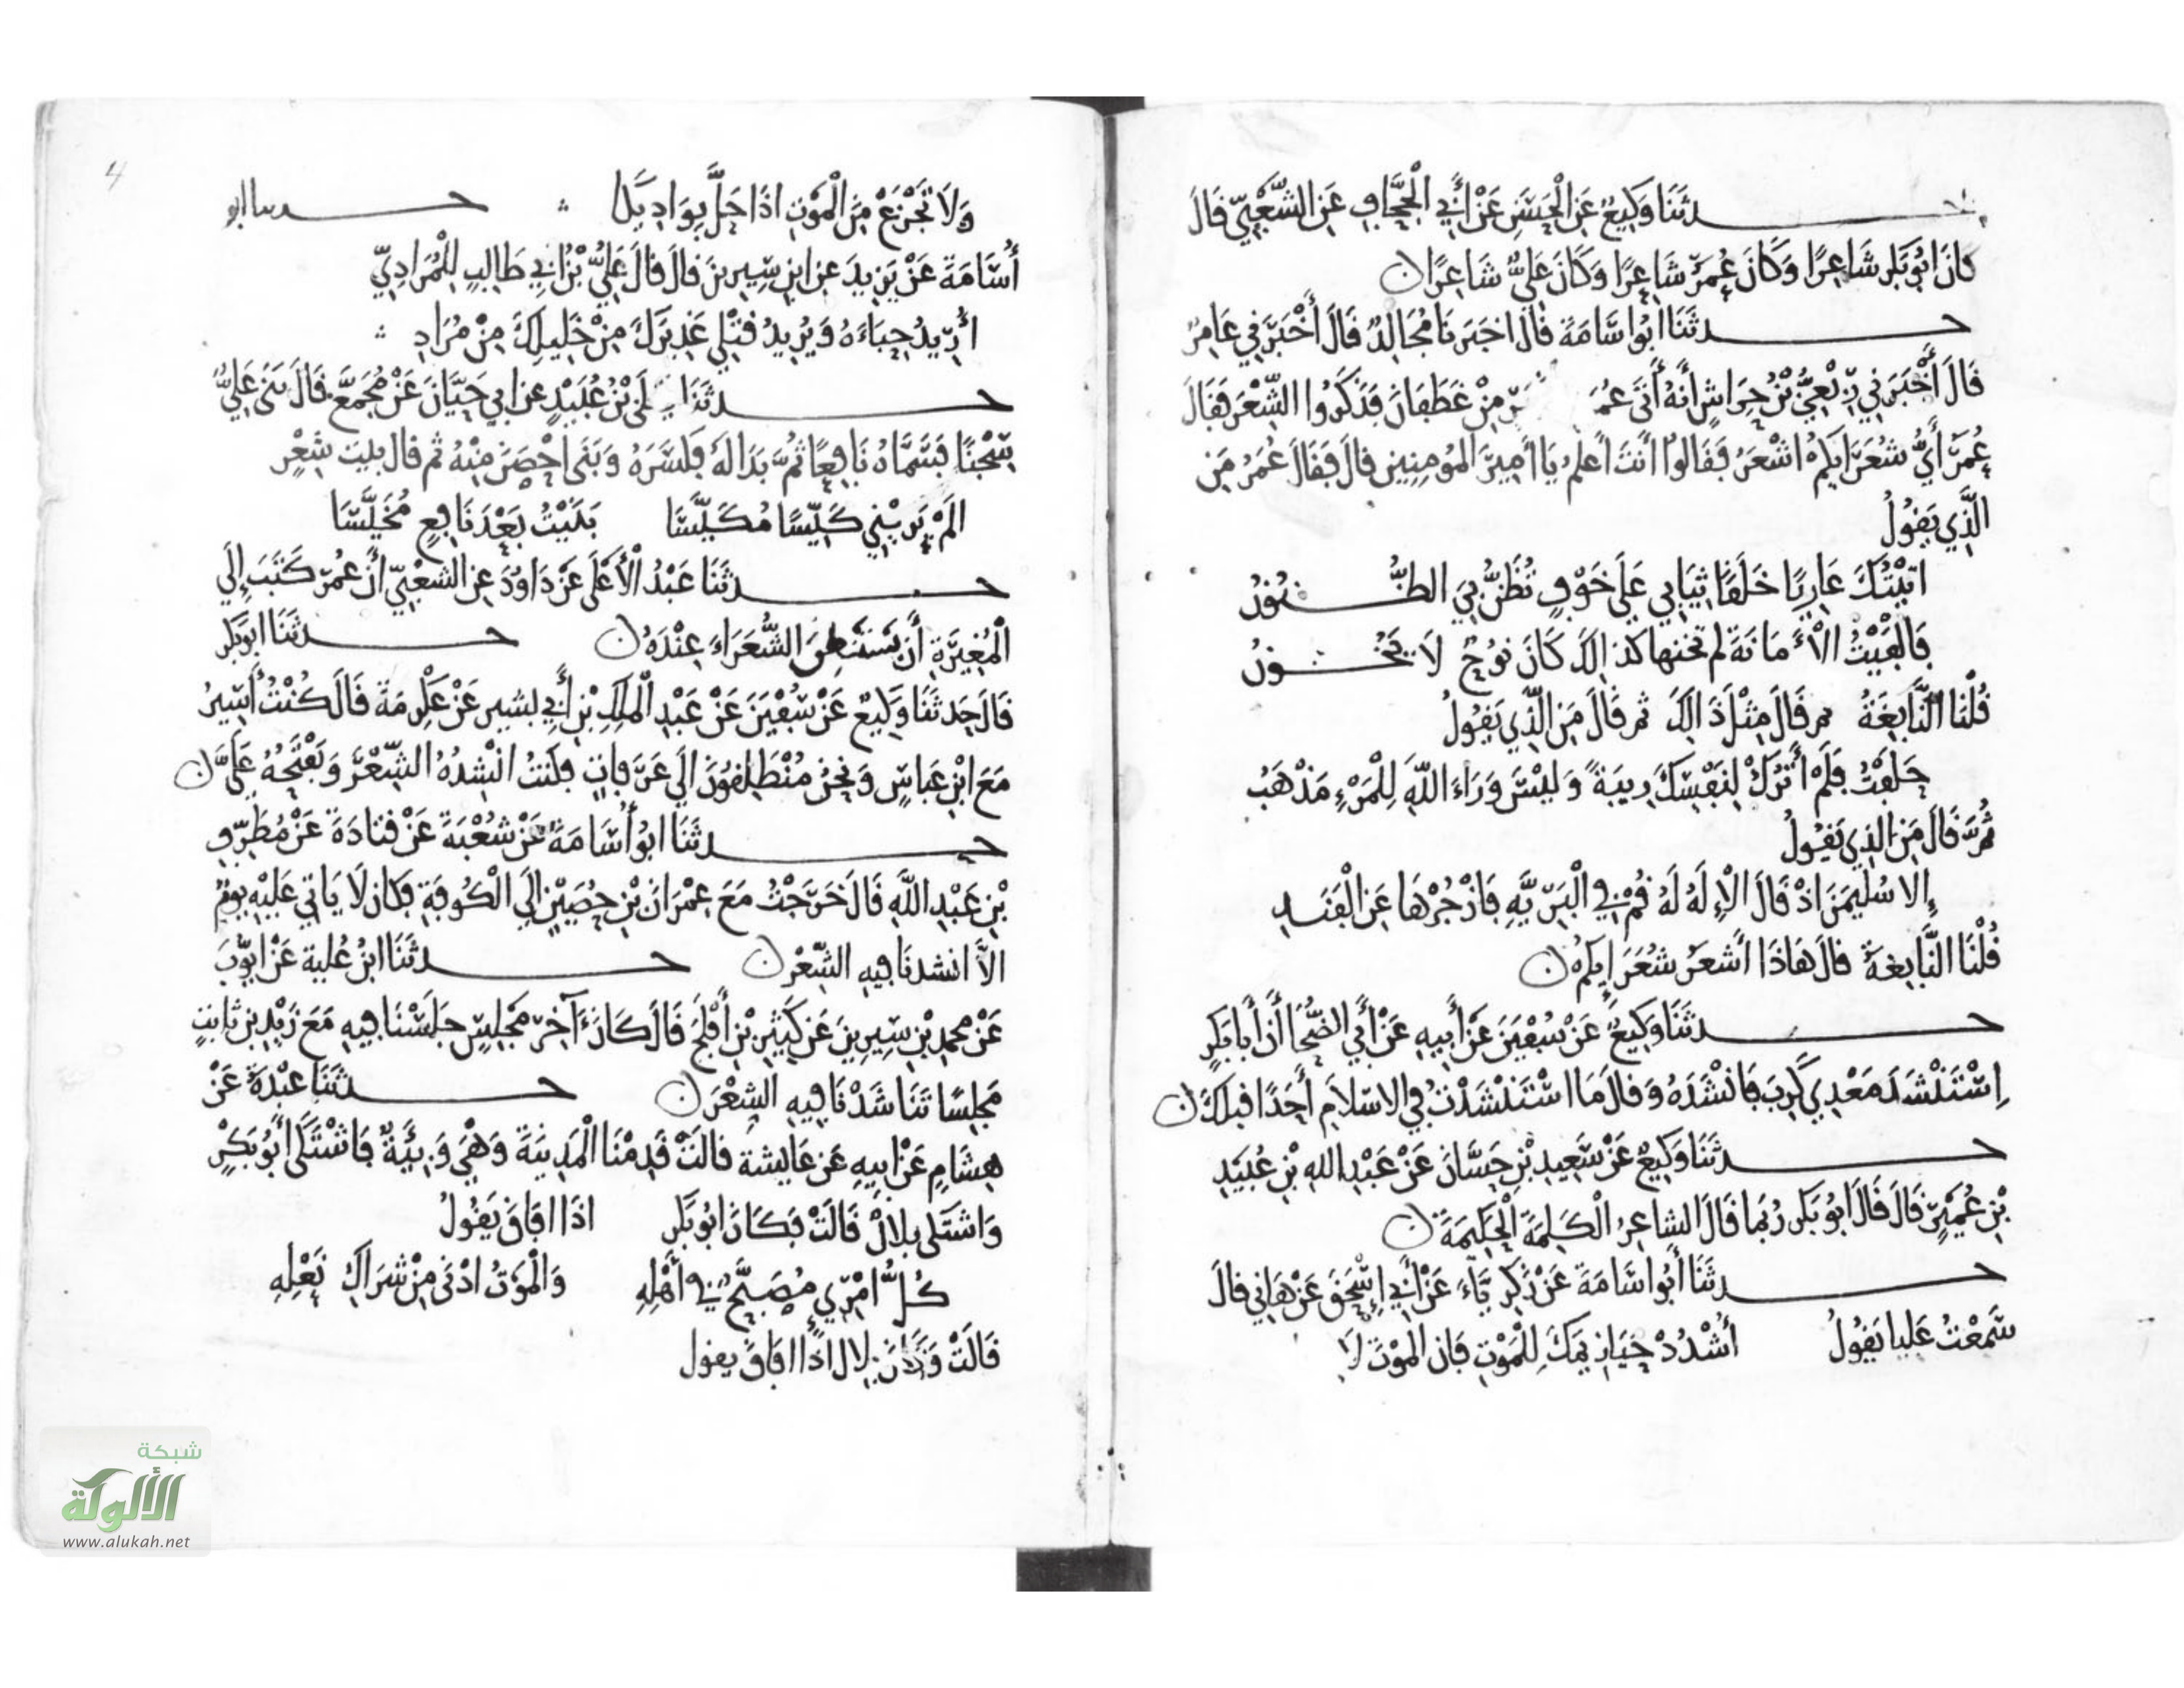 حدثنا وكيع عن الحسن عن أبي الجحاف عن الشعبي قال
كان ابو بكر شاعرا وكان عمر شاعرا وكان علي شاعرا
حدثنا ابو اسامة قال اخبرنا مجالد قال أخبرني عامر
قال أخبرني ربعي بن حراش أنه أتى عمر من غطفان فذكروا الشعر فقال
عمر أي شعرايكم اشعر فقالوا أنت أعلم يا أمير المؤمنين قال فقال عمر من
الذي يقول
اتيتك عاريا خلقا ثيابي على خوف تظن بي الظنون
فالفيت الأمانة لم تخنها كذالك كان نوح لا يخون
قلنا النابغة ثم قال مثل ذالك ثم قال من الذي يقول
حلفت فلم أترك لنفسك ريبة وليس وراء الله للمرء مذهب
ثم قال من الذي يقول
إلا سليمن اذ قال الإله له قم في البرية فازجرها عن الفند
قلنا النابغة قال هاذا أشعر شعرايكم
حدثنا وكيع عن سفين عن أبيه عن أبي الضحا أن أبا بكر
استنشد معدي كرب فانشده وقال ما استنشدت في الاسلام أحدا قبلك
حدثنا وكيع عن سعيد بن حسان عن عبد الله بن عبيد
بن عمير قال قال ابو بكر ربما قال الشاعر الكلمة الحكيمة
حدثنا أبو اسامة عن زكرياء عن أبي إسحق عن هاني قال
سمعت عليا يقول أشدد حيازيمك للموت فان الموت لا
4
ولا تجزع من الموت اذا حل بواديك حدثنا ابو
أسامة عن يزيد عن ابن سيرين قال قال علي بن أبي طالب للمرادي
أريد حباءه ويريد قتلي عذيرك من خليلك من مراد
حدثنا بن عبيد عن ابي حيان عن مجمع قال بنى علي
سجنا فسماه نافعا ثم بدا له فكسره وبنى احصن منه ثم قال بيت شعر
الم يريني كيسا مكيسا بنيت بعد نافع مخيسا
حدثنا عبد الأعلى عن داود عن الشعبي أن عمر كتب إلى
المغيرة أن يستنطق الشعراء عنده حدثنا ابو بكر
قال حدثنا وكيع عن سفين عن عبد الملك بن أبي بشير عن عكرمة قال كنت أسير
مع ابن عباس ونحن منطلقون الى عرفات فكنت انشده الشعر ويفتحه علي
حدثنا ابو أسامة عن شعبة عن قتادة عن مطرف
بن عبد الله قال خرجت مع عمران بن حصين الى الكوفة فكان لا ياتي عليه يوم
الا انشدنا فيه الشعر حدثنا ابن علية عن ايوب
عن محمد بن سيرين عن كثير بن أفلح قال كان آخر مجلس جلسنا فيه مع زيد بن ثابت
مجلسا تناشدنا فيه الشعر حدثنا عبدة عن
هشام عن ابيه عن عايشة قالت قدمنا المدينة وهي وبئية فاشتكى أبو بكر
واشتكى بلال قالت فكان ابو بكر اذا افاق يقول
كل امرئ مصبح في أهله والموت ادنى من شراك نعله
قالت وكان بلال اذا افاق يقول
شبكة
الألوكة
www.alukah.net